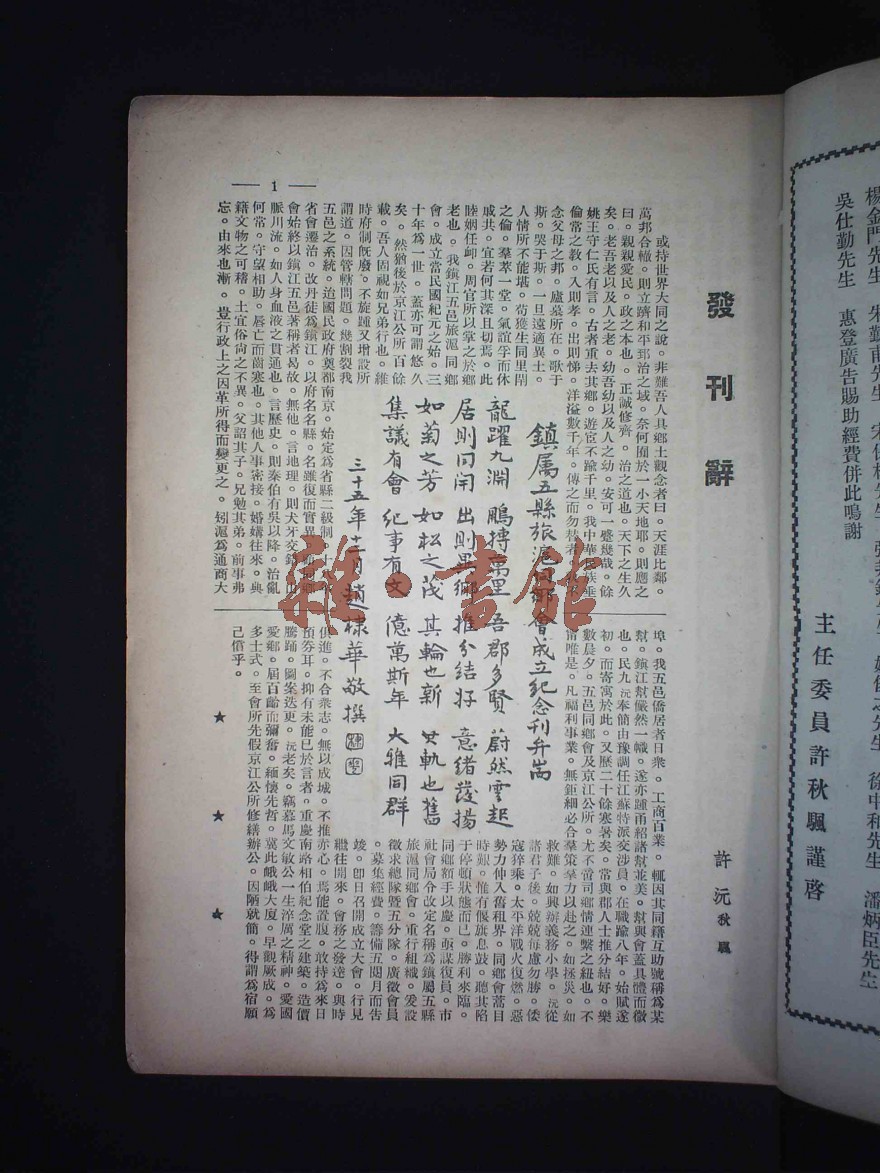 發刊辭
許沅秋颿
或持世界大同之說。非難吾人具鄉土觀念者曰。天涯比鄰。
萬邦合轍。則立躋和平郅治之域。奈何囿於一小天地耶。則應之
曰。親親愛民。政之本也。正誠修齊。治之道也。天下之生久
矣。老吾老以及人之老。幼吾幼以及人之幼。安可一蹙幾哉。餘
姚王守仁氏有言。古者重去其鄉。遊宦不踰千里。我中華民族垂
倫常之教。入則孝。出則悌。洋溢數千年。傳之而勿替者
念父母之邦。廬墓所在。歌于
斯。哭于斯。一旦遠適異土。
人情所不能堪。苟獲生同里閈
之倫。羣萃一堂。氣誼孚而休
戚共。宜若何其深且切焉。此
睦婣任卹。周官所以掌之於鄉
老也。我鎮江五邑旅滬同鄉
會。成立當民國紀元之始。三
十年為一世。蓋亦可謂悠久
矣。然猶後於京江公所百餘
載。吾人固視如兄弟行也。維
時府制旣廢。不旋踵又增設所
謂道。因管轄問題。幾割裂我
五邑之系統。迨國民政府奠都南京。始定為省縣二級制。
省會遷治。改丹徒為鎮江。以府名名縣。名雖復而實異
會始終以鎮江五邑著稱者曷故。無他。言地理。則犬牙交錯。山
脈川流。如人身血液之貫通也。言歷史。則泰伯有吳以降。治亂
何常。守望相助。唇亡而齒寒也。其他人事密接。婚媾往來。與
籍文物之可稽。土宜俗尚之不異。父詔其子。兄勉其弟。前事弗
忘。由來也漸。豈行政上之因革所得而變更之。矧滬為通商大
鎮屬五縣旅滬同鄉會成立紀念刊弁耑
龍躍九淵 鵬摶萬里 吾郡多賢 蔚然雲起
居則同閈 出則異鄉 推分結好 意緒發揚
如菊之芳 如松之茂 其輪也新 其軌也舊
集議有會 紀事有文 億萬斯年 大雅同群
三十五年十二月趙棣華敬撰
埠。我五邑僑居者日衆。工商百業。輒因其同籍互助號稱為某
幫。鎮江幫儼然一幟。遂亦踵甬紹諸幫並美。幫與會蓋具體而微
也。民九沅奉簡由豫調任江蘇特派交涉員。在職踰八年。始賦遂
初。而寄寓於此。又歷二十餘寒暑矣。常與郡人士推分結好。樂
數晨夕。五邑同鄉會及京江公所。尤不啻司鄉情連繫之紐也。不
甯唯是。凡福利事業。無鉅細必合羣策羣力以赴之。如拯災。如
救難。如興辦義務小學。沅從
諸君子後。兢兢每慮勿勝。倭
寇猝乘。太平洋戰火復燃。惡
勢力伸入舊租界。同鄉會蒿目
時艱。惟有偃旗息鼓。聽其陷
于停頓狀態而已。勝利來臨。
同鄉額手以慶。亟謀復員。市
社會局令改定名稱為鎮屬五縣
旅滬同鄉會。重行組織。爰設
徵求總隊暨五分隊。廣徵會員
。募集經費。籌備五閱月而告
竣。卽日召開成立大會。行見
繼往開來。會務之發達。與時
俱進。不合衆志。無以成城。不推赤心。焉能置腹。敢持為來日
預券耳。抑有未能已於言者。重慶南路相伯紀念堂之建築。造價
騰踊。圖案迭更。沅老矣。竊慕馬文敏公一生淬厲之精神。愛國
愛鄉。屆百齡而彌奮。緬懷先哲。冀此峨峨大廈。早觀厥成。為
多士式。至會所先假京江公所修繕辦公。因陋就簡。得謂為宿願
己償乎。
★ ★ ★
1
雜·書館
楊金門先生
吳仕勤先生 惠登廣告賜助經費併此鳴謝
徐中和先生 潘炳臣先生
主任委員許秋颿謹啓